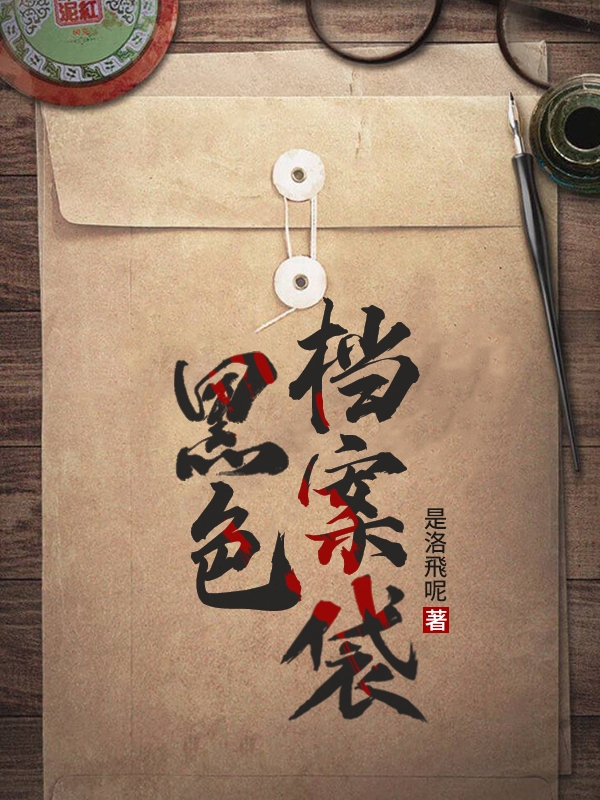 泥紅
黑色
档案袋
是洛飛呢
著